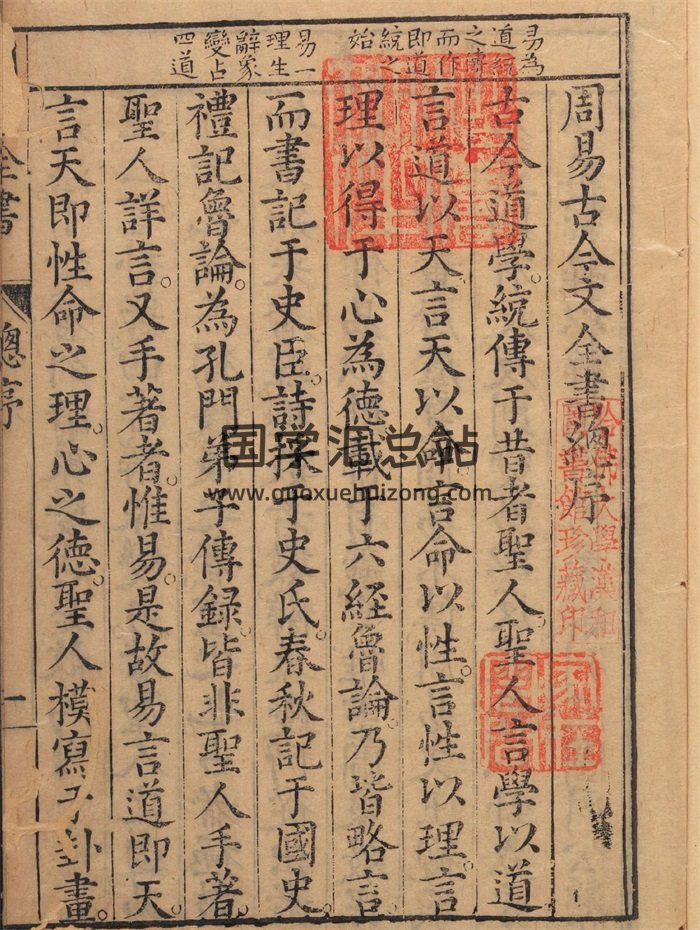 易為
道統
之傳
而作
即道
統之
始
易一
理生
辭象
變占
四道
周易古今文全書總序
古今道學。統傳于昔者聖人。聖人言學以道
言道以天。言天以命。言命以性。言性以理。言
理以得于心為德。載于六經魯論。乃皆略言
而書記于史臣。詩採于史氏。春秋記于國史。
禮記魯論。為孔門弟子傳録。皆非聖人手著。
聖人詳言。又手著者。惟易。是故易言道即天。
言天即性命之理。心之德。聖人模寫于卦畫。
全書
總序
一
大學漢和
珍藏印
国学汇总站
www.guoxuehuizong.com